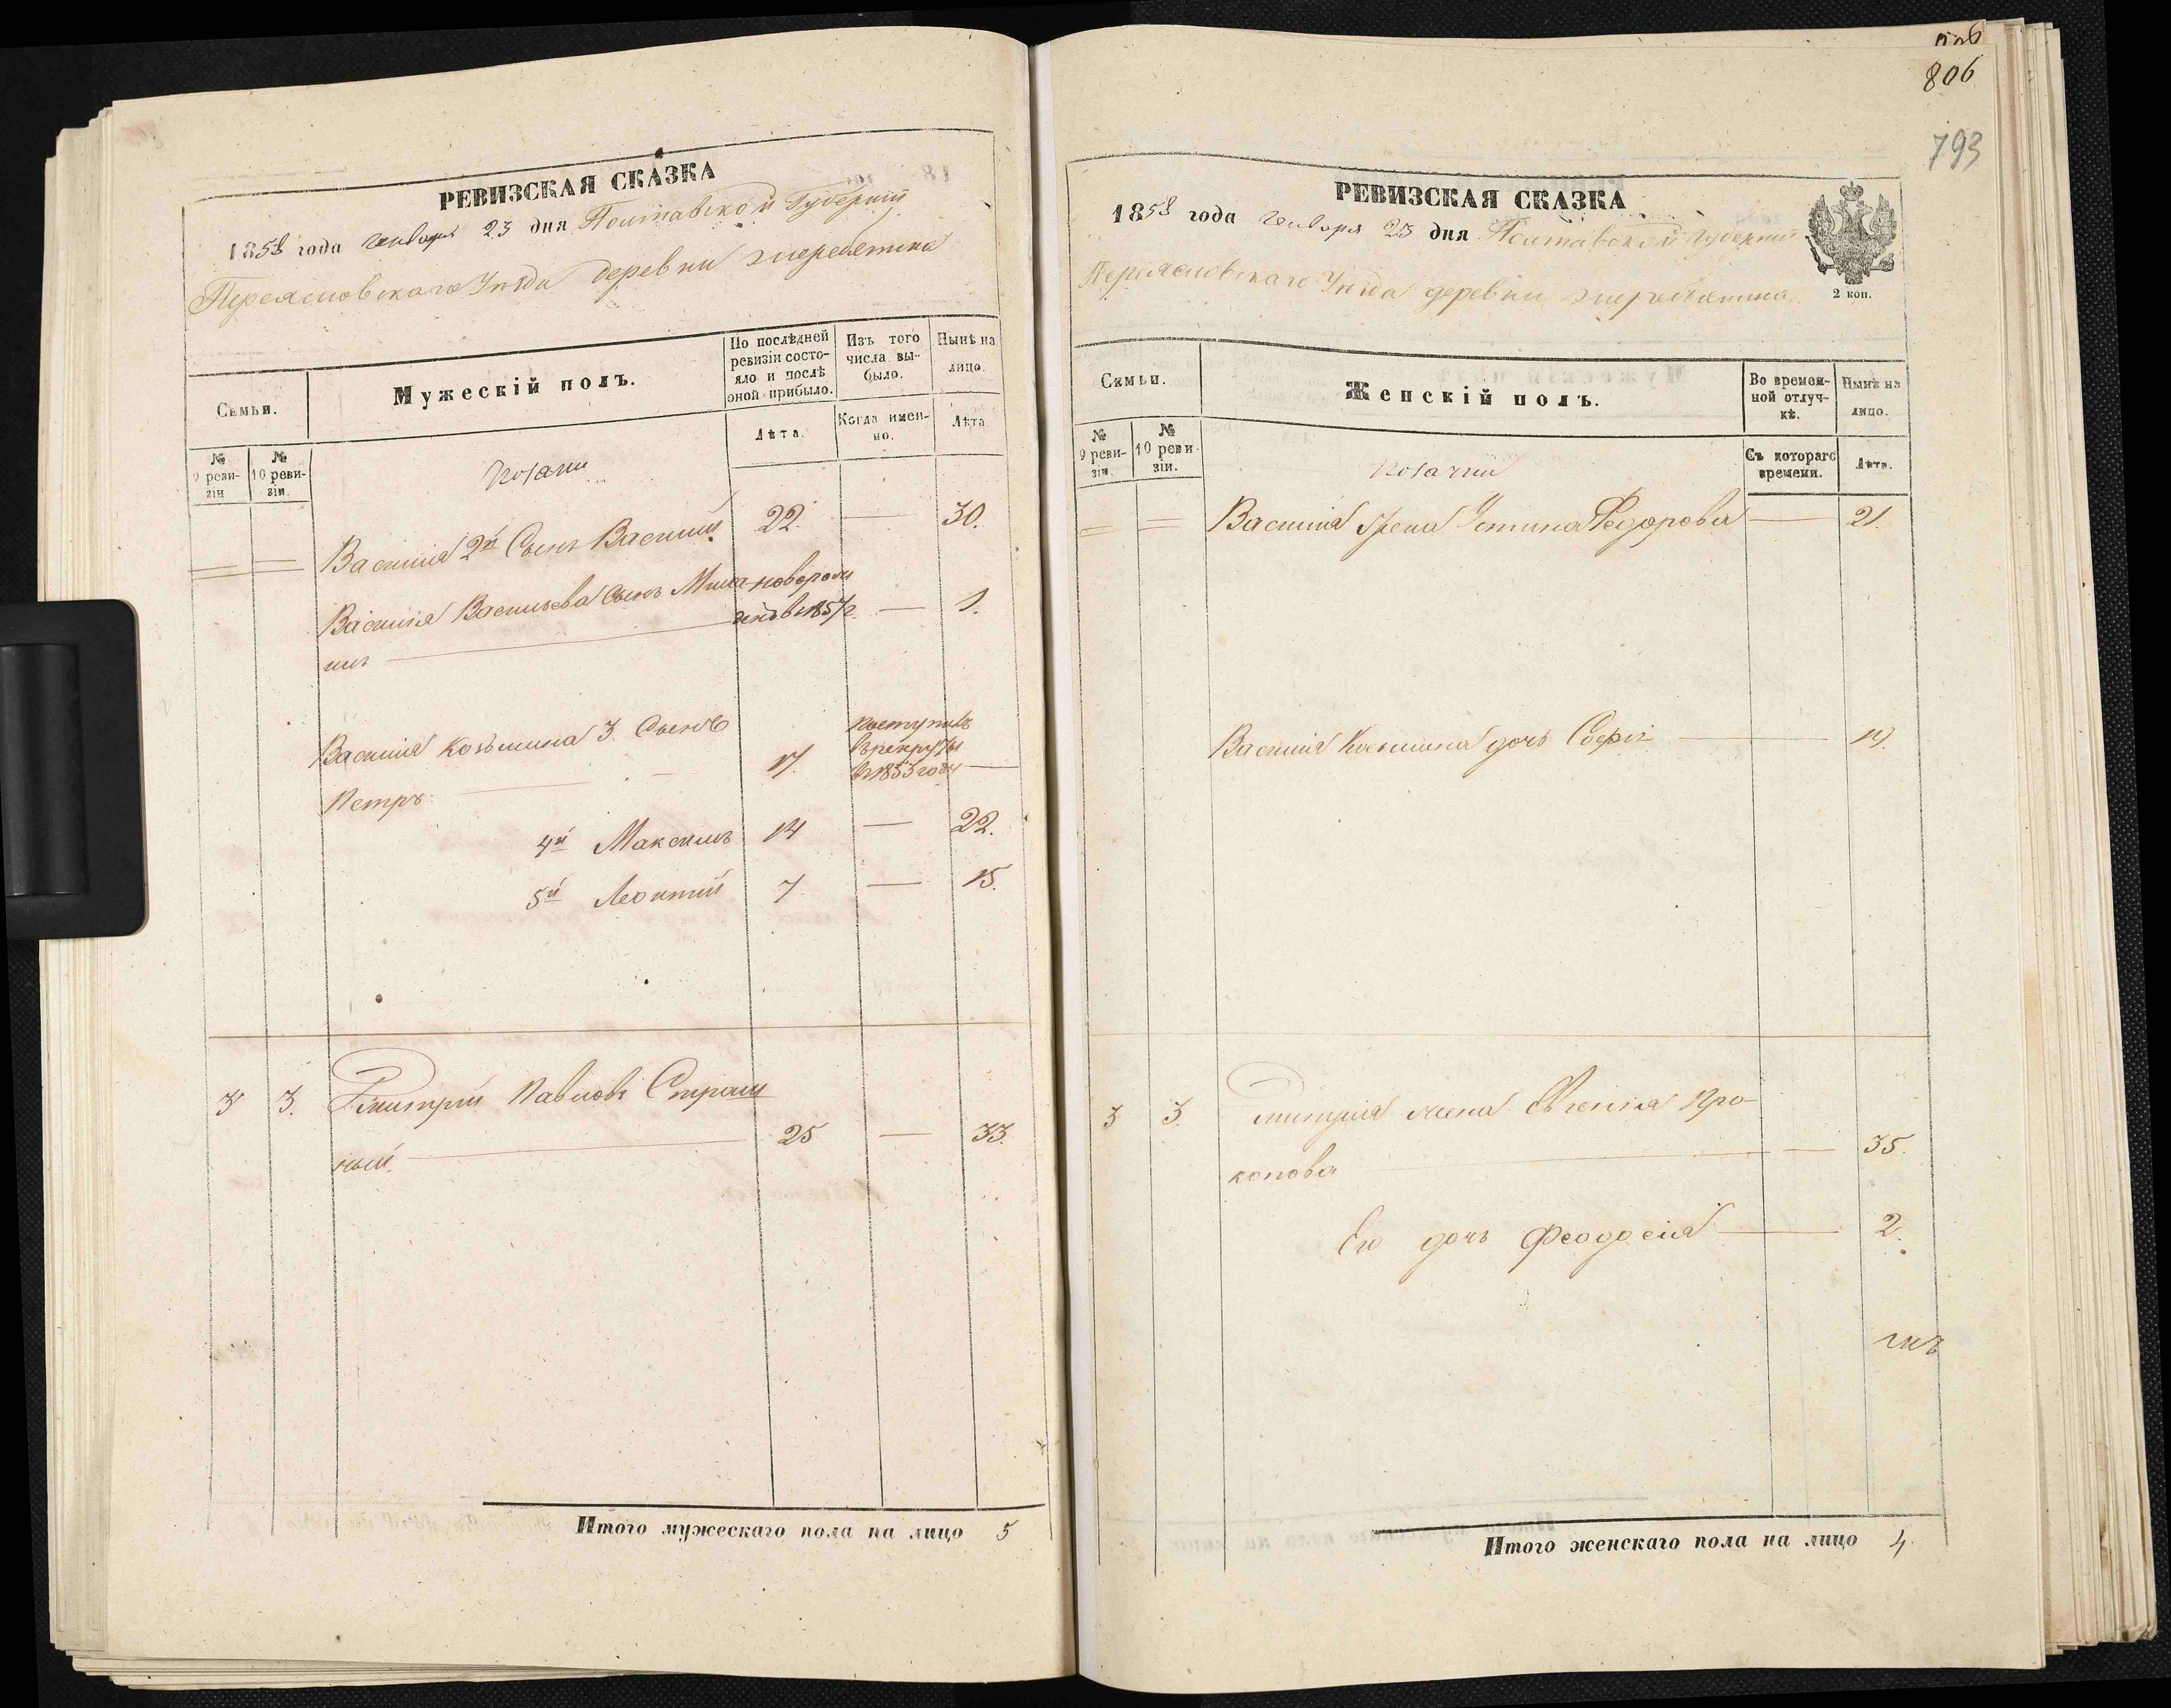 РЕВИЗСКАЯ СКАЗКА
1858 года Генваря 23 дня Полтавской Губерніи
Переясловскаго Уѣзда деревни
Семьи.
Мужескій полъ.
По послѣдней ревизіи состояло и послѣ оной прибыло.
Изъ того числа выбыло.
Нынѣ на лицо.
Лѣта.
Когда именно.
Лѣта
№ 9 ревизіи
№ 10 ревизіи.
Козаки
Василія 2й Сынъ Василій 22. — 30.
Василія Васильева Сынъ Миха новорож
илъ — денъ в 1857 г. — 1.
Василія Козьмина 3 Сынъ поступилъ
Петръ 17. въ рекруты
въ 1853 году —
4й Максимъ 14 — 22.
5й Леонтій 7. — 15.
3 3. Дмитрій Павловъ Страш
ный 25 — 33.
Итого мужескаго пола на лицо 5
806
793
РЕВИЗСКАЯ СКАЗКА
1858 года Генваря 23 дня Полтавской Губерніи
Переясловскаго Уѣзда деревни
2 коп.
Семьи.
Женскій полъ.
Во временной отлучкѣ.
Нынѣ на лицо.
№ 9 ревизіи.
№ 10 ревизіи.
Съ котораго времени.
Лѣта.
Козачки
Василія Жена Устина Федорова — 21.
Василія Козьмина дочь Софія —
3 3. Дмитрія жена Евгенія Про-
копова — 35.
Его дочь Феодосія — 2.
Итого женскаго пола на лицо 4.